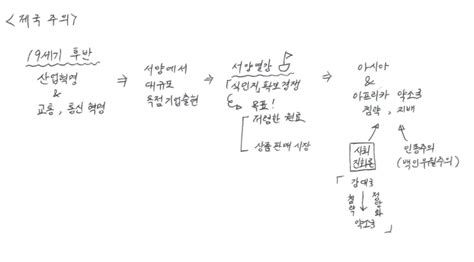 <제국 주의>
19세기 후반
산업혁명
&
교통, 통신 혁명
⇒
서양에서
대규모
독점기업출현
⇒
서양열강
「식민지 확보경쟁
목표!
저렴한 원료
상품판매 시장
⇒
아시아
&
아프리카 약소국
침략, 지배
사회
진화론
인종주의
(백인우월주의)
「강대국
침략 정당화
약소국」